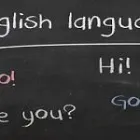 glish langua
Hi!
o!
e you?
Go